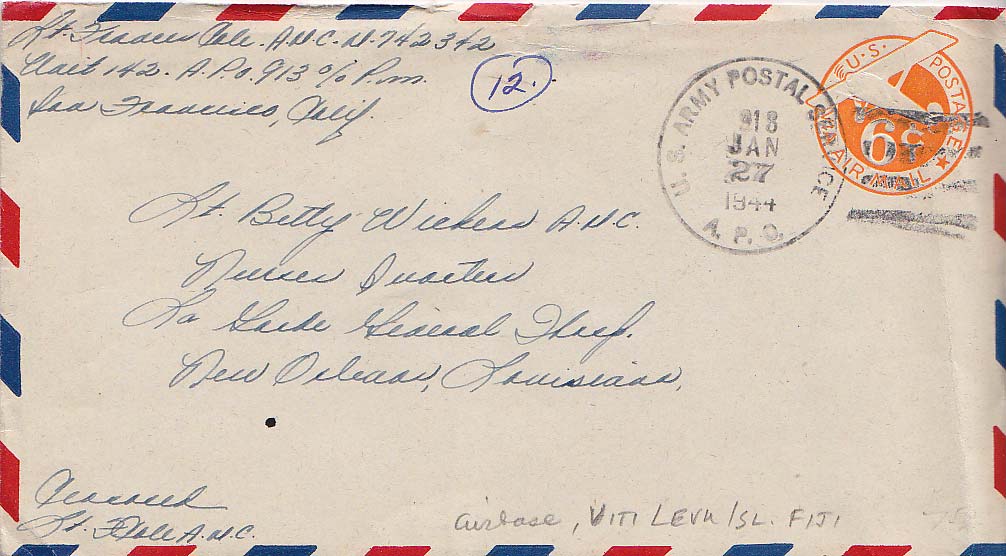 Lt. Frances Cole. A.N.C. N.742342
Unit 142. A.P.O. 913 c/o P.m.
San Francisco, Calif.
12.
U.S. ARMY POSTAL SERVICE
918
JAN
27
1944
A. P. O.
U.S. POSTAGE
6¢
AIR MAIL
Lt. Betty Wickers A.N.C.
Nurses Quarters
La Garde General Hosp.
New Orleans, Louisiana.
Censored
Lt. F Cole A.N.C.
airbase, VITI LEVU ISL. FIJI